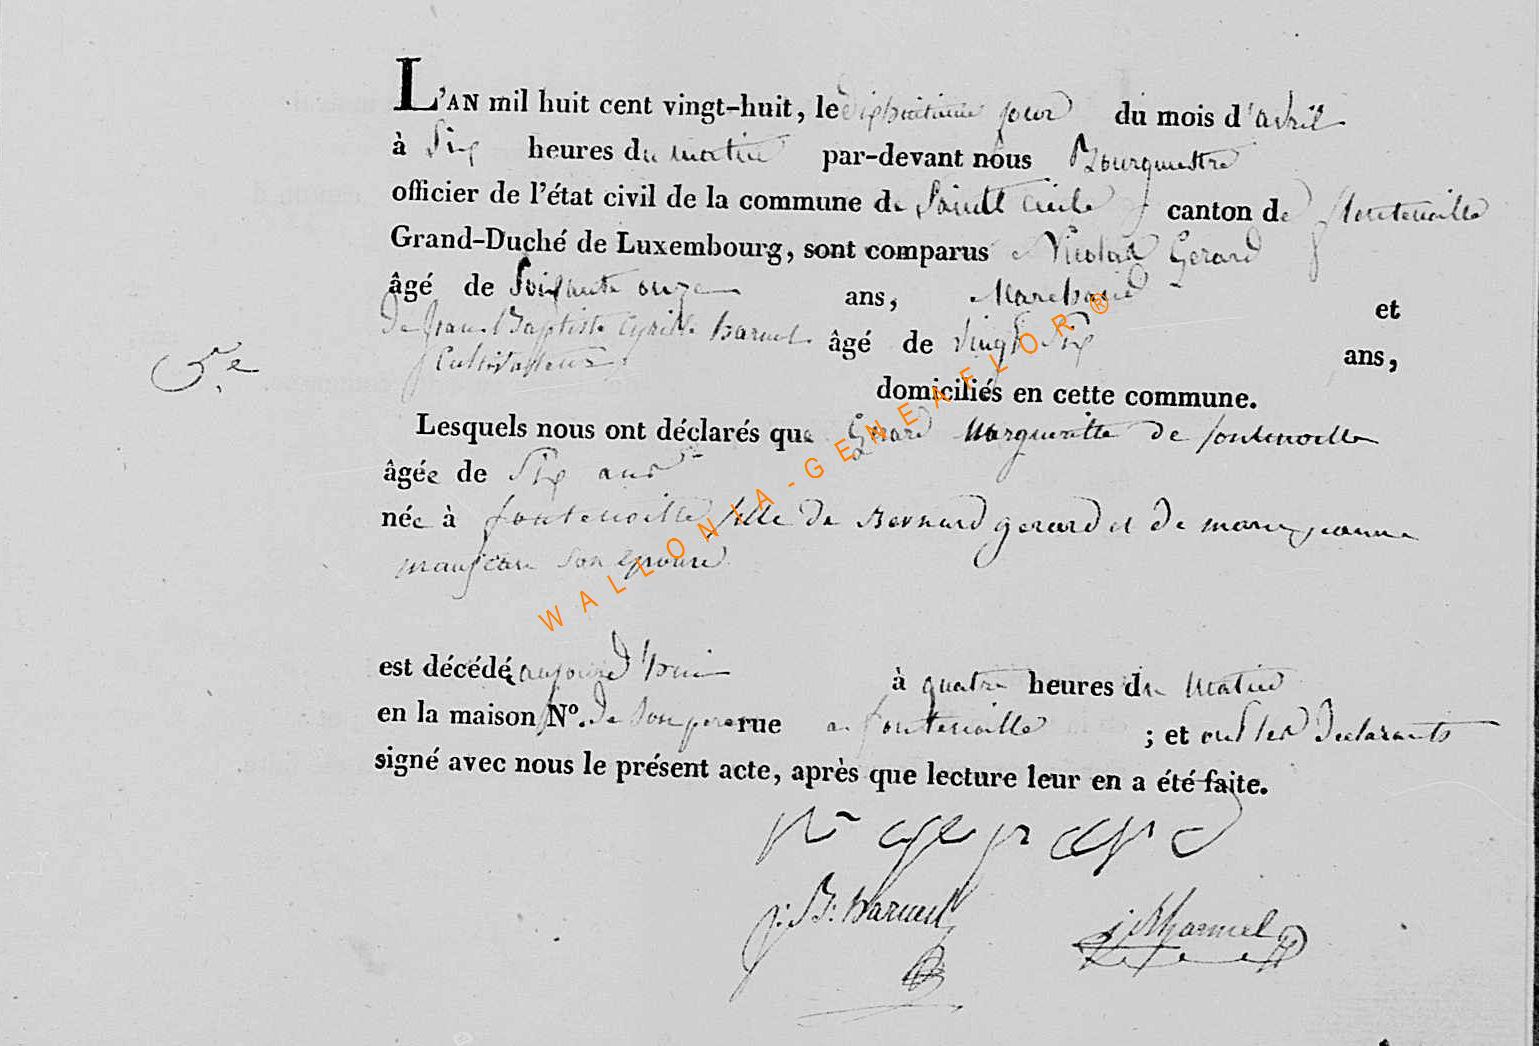 L'AN mil huit cent vingt-huit, le dixhuitieme jour du mois d'avril
à six heures du matin par-devant nous Bourgmestre
officier de l'état civil de la commune de Sainte Cecile canton de fontenoille
Grand-Duché de Luxembourg, sont comparus Nicolas Gerard
âgé de Soixante onze ans, Marechal et
de Jean Baptiste Cyrille Haruel âgé de vingt six ans,
Cultivateur
domiciliés en cette commune.
5.e
Lesquels nous ont déclarés que Gerard Marguerite de fontenoille
âgée de Six ans
née à fontenoille fille de Bernard gerard et de marie jeanne
son epouse
est décédé aujourd'hui à quatre heures du Matin
en la maison Nº. de son pere rue a fontenoille ; et ont les declarants
signé avec nous le présent acte, après que lecture leur en a été faite.
n gerard
j: B: Haruel
WALLONIA-GENEAFLOR®